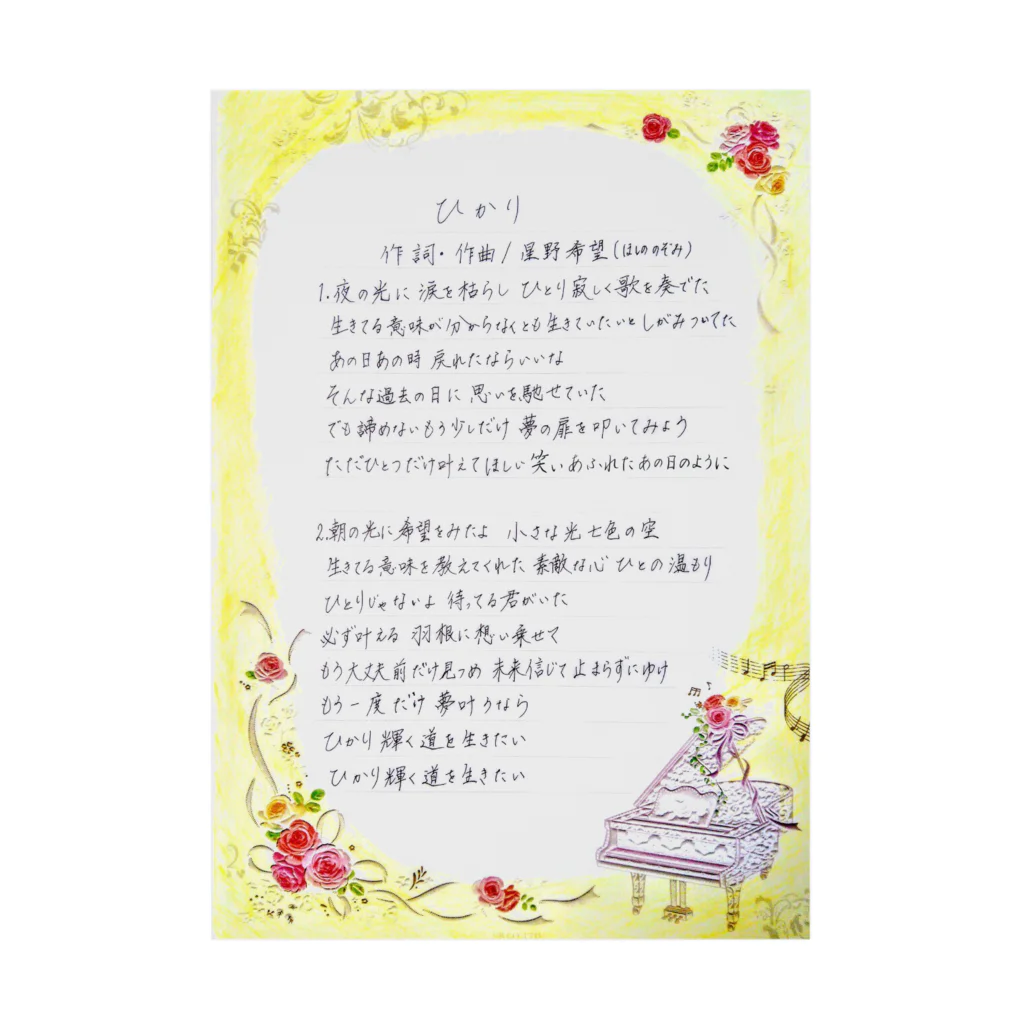 ひかり
作詞・作曲/星野希望(ほしののぞみ)
1.夜の光に 涙を枯らし ひとり寂しく歌を奏でた
生きてる意味が分からなくとも生きていたいと しがみついてた
あの日あの時 戻れたならいいな
そんな過去の日に 思いを馳せていた
でも諦めないもう少しだけ 夢の扉を叩いてみよう
ただひとつだけ叶えてほしい 笑いあふれたあの日のように
2.朝の光に希望をみたよ 小さな光 七色の空
生きてる意味を教えてくれた 素敵な心 ひとの温もり
ひとりじゃないよ 待ってる君がいた
必ず叶える 羽根に想い乗せて
もう大丈夫 前だけ見つめ 未来信じて 止まらずにゆけ
もう一度だけ 夢叶うなら
ひかり輝く道を生きたい
ひかり輝く道を生きたい